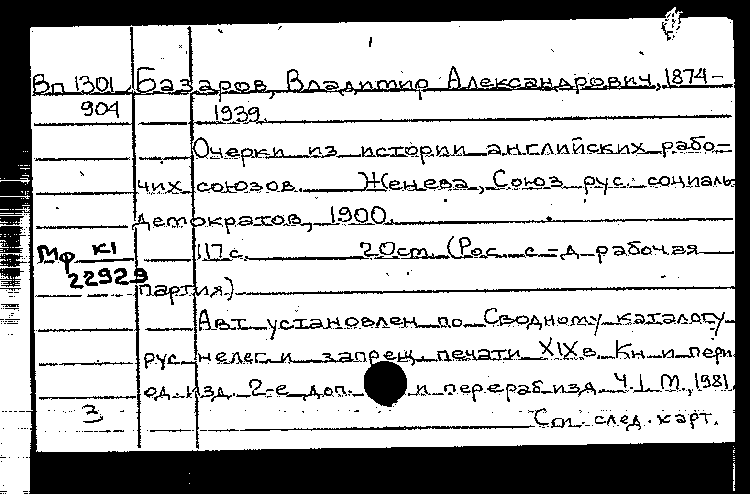 Вп 1301 Базаров, Владимир Александрович, 1874-
904 1939.
Очерки из истории английских рабо-
чих союзов. Женева, Союз рус. социаль
демократов, 1900.
Мф К1 117 с. 20 см. (Рос. с.-д. рабочая
22929
партия)
Авт. установлен по Сводному каталогу
рус. нелег. и запрещ. печати XIX в. Кн и пери
од. изд. 2-е доп. и перераб. изд. Ч. I. М., 1981.
3 См. след. карт.